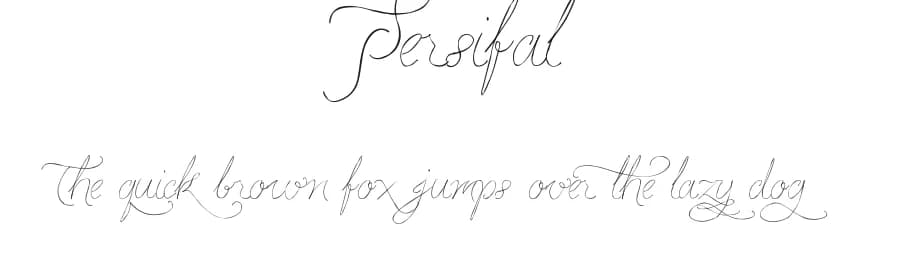 Persifal
The quick brown fox jumps over the lazy dog